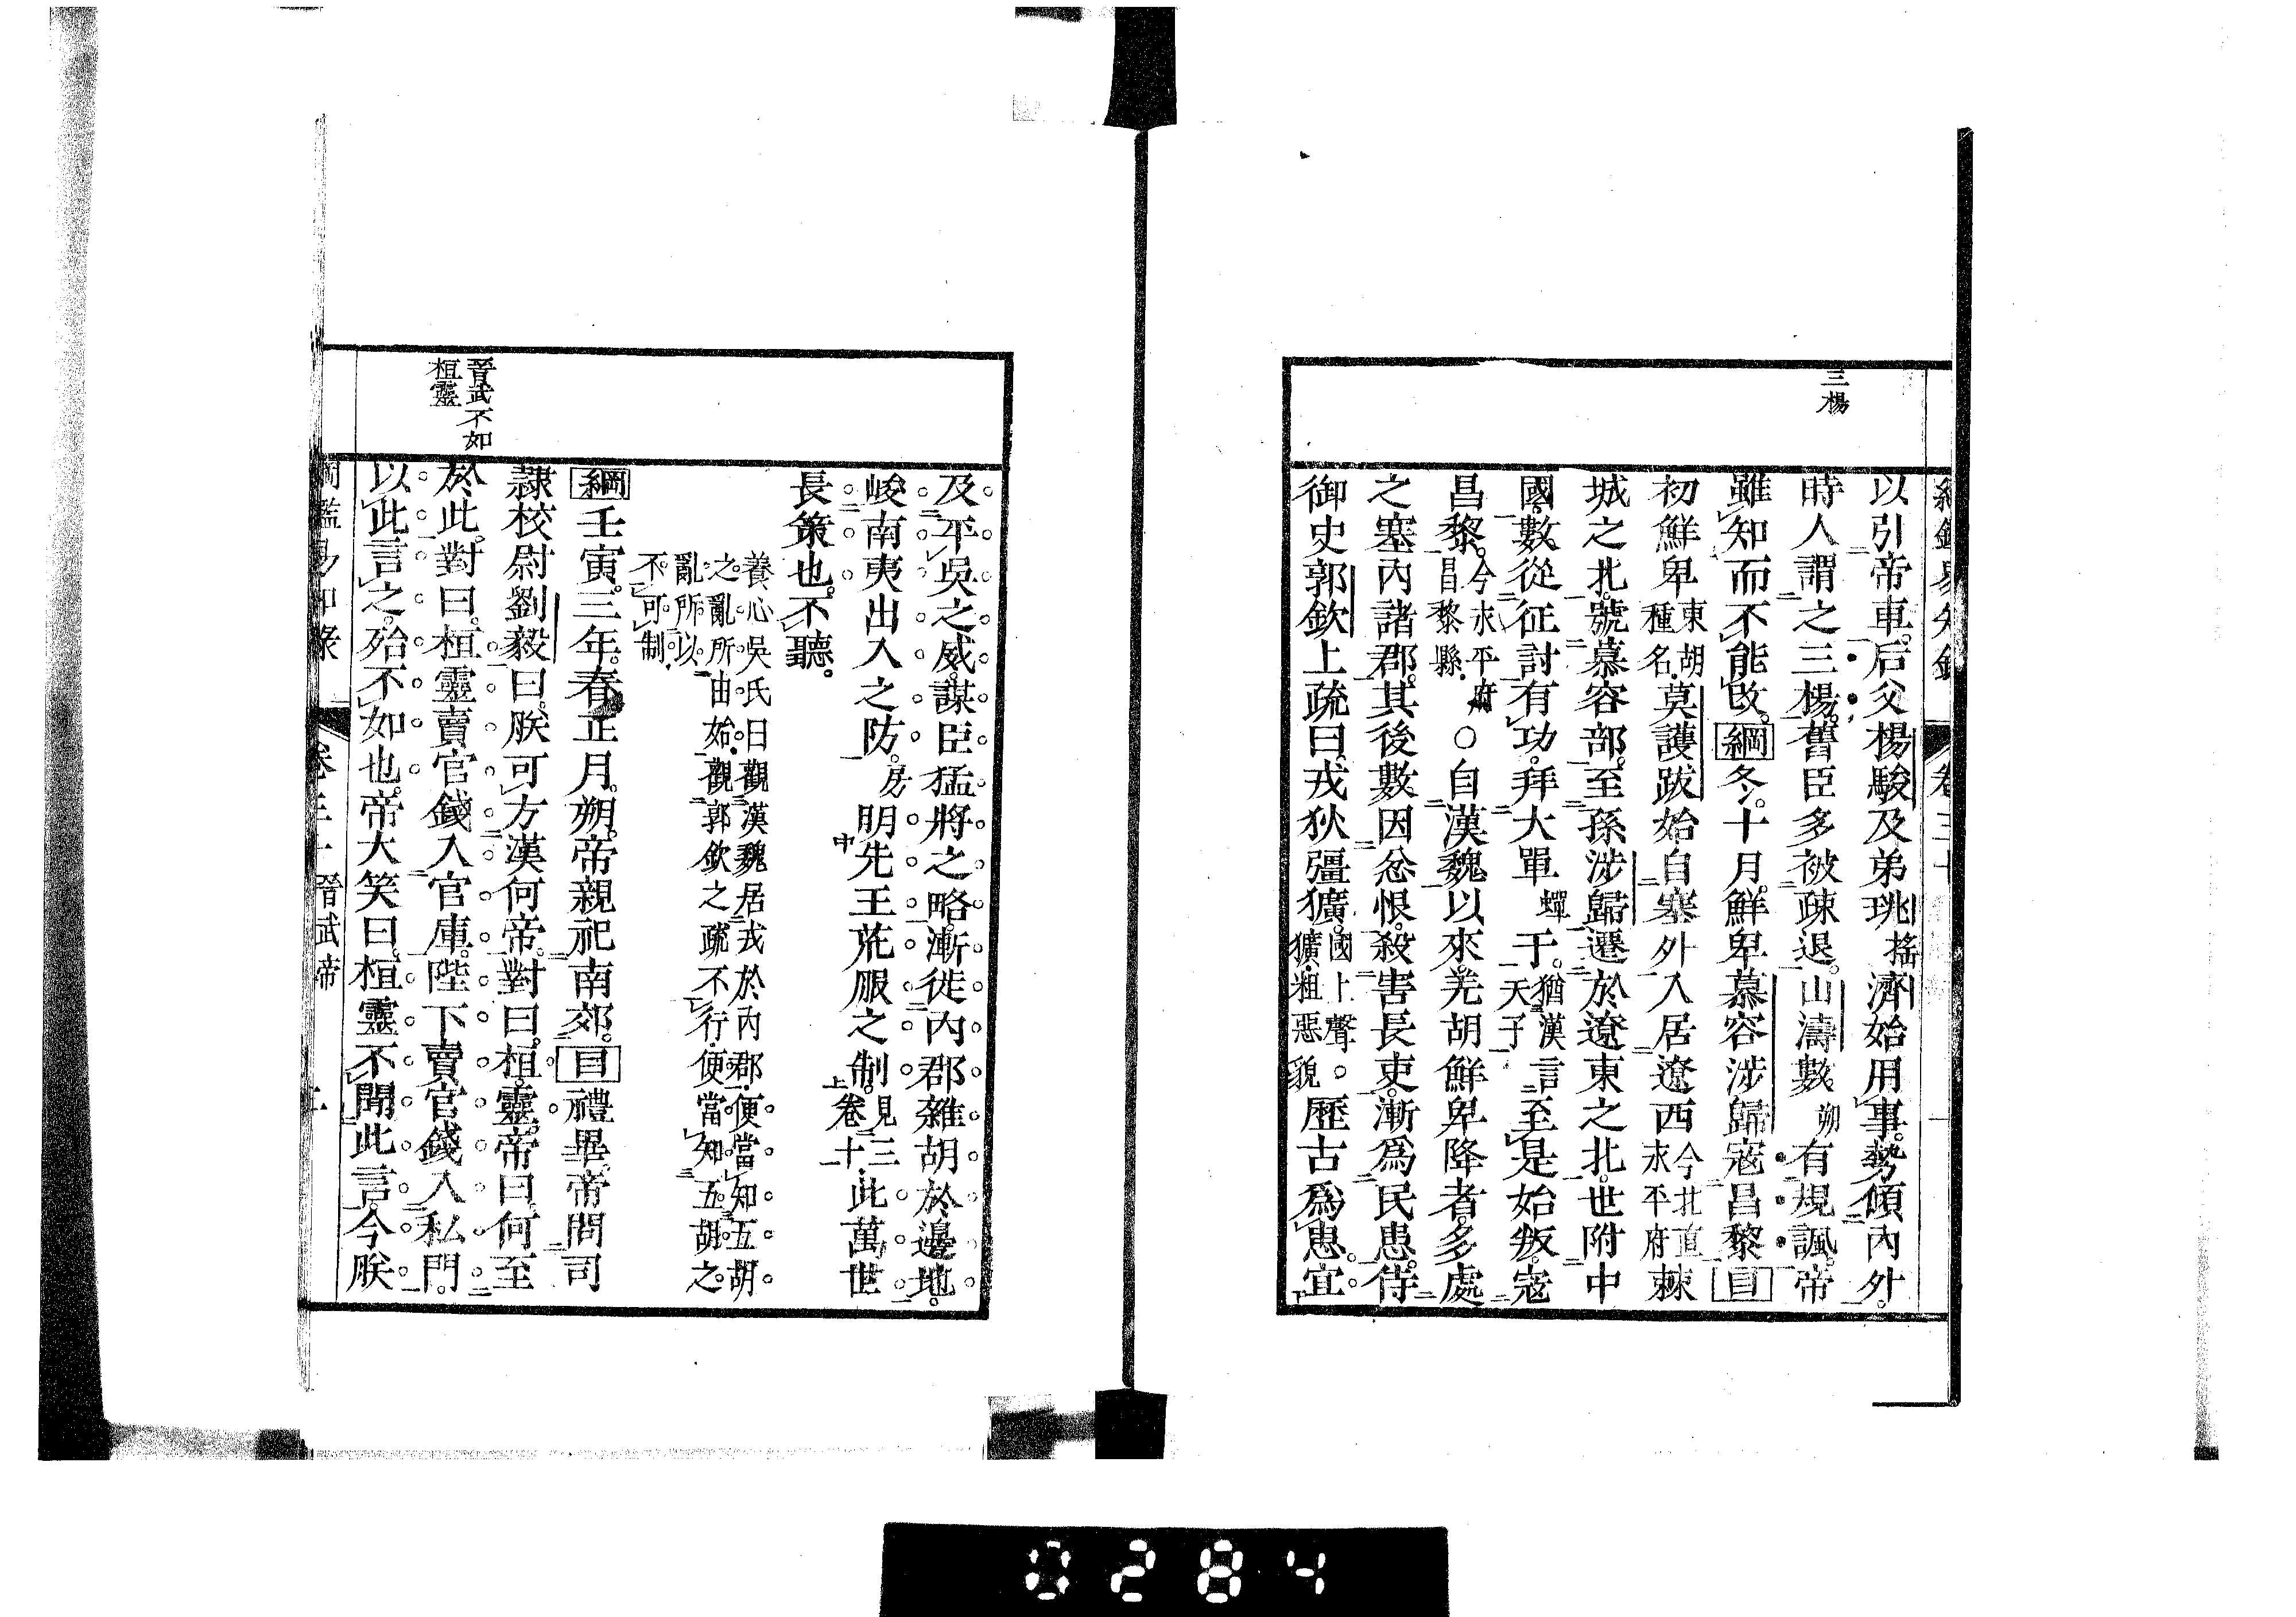 三楊
以引帝車。后父楊駿及弟珧搖濟始用事。勢傾內外。
時人謂之三楊。舊臣多被疎退。山濤數朔有規諷。帝
雖知而不能改。綱冬。十月。鮮卑慕容涉歸寇昌黎。目
初鮮卑東胡種名。莫護跋始自塞外入居遼西今北直永平府棘
城之北。號慕容部。至孫涉歸遷於遼東之北。世附中
國。數從征討有功。拜大單蟬于。猶漢言天子至是始叛。寇
昌黎。今永平府昌黎縣。○自漢魏以來。羌胡鮮卑降者。多處
之塞內諸郡。其後數因忿恨。殺害長吏。漸爲民患。侍
御史郭欽上疏曰。戎狄彊獷。國上聲。獷粗惡貌。歷古爲患。宜
及平吳之威。謀臣猛將之略。漸徙內郡雜胡於邊地。
峻南夷出入之防。房明中先王荒服之制。見上卷三十此萬世
長策也。不聽。
養心吳氏曰觀漢魏居戎於內郡便當知五胡
之亂所由始。觀郭欽之疏不行便當知五胡之
亂所以不可制
綱壬寅。三年。春正月。朔。帝親祀南郊。目禮畢。帝問司
隸校尉劉毅曰。朕可方漢何帝。對曰。桓靈。帝曰。何至
於此。對曰。桓靈賣官錢入官庫。陛下賣官錢入私門。
以此言之。殆不如也。帝大笑曰。桓靈不聞此言。今朕
晉武不如
桓靈
晉武帝
0284